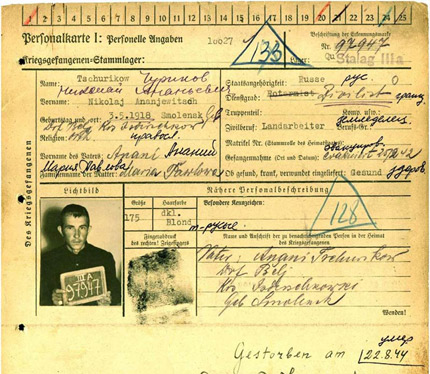 1 2 3 4 5 6 7 8 9 10 11 12 13 14 15 16 17 18 19 20 21 22 23 24 25
Personalkarte I: Personelle Angaben
Beschriftung der Erkennungsmarke
133
Nr. 97947
Kriegsgefangenen-Stammlager:
Lager: Stalag IIIa
Des Kriegsgefangenen
Name: Tschurikow Чуриков
Николай Ананьевич
Vorname: Nikolaj Ananjewitsch
Geburtstag und -ort: 5.5.1918 Smolensk
Religion:
Vorname des Vaters: Anani Ананий
Мария Павловна
Familienname der Mutter: Maria Pavlowa
Staatsangehörigkeit: Russe рус.
Dienstgrad: Zivilist гражд.
Truppenteil: Komp. usw.:
Zivilberuf: Landarbeiter Berufs-Gr.:
Matrikel Nr. (Stammrolle des Heimatstaates):
Gefangennahme (Ort und Datum):
Ob gesund, krank, verwundet eingeliefert: Gesund здоров
Lichtbild
III A
97947
Nähere Personalbeschreibung
Größe
Haarfarbe
Besondere Kennzeichen:
175
dkl.
Blond
т-русые
128
Fingerabdruck
des rechten! Zeigefingers
Name und Anschrift der zu benachrichtigenden Person in der Heimat
des Kriegsgefangenen
Vater: Anani Tschurikow
Dorf Belj
Geb Smolensk
Wenden!
умер
Gestorben am 22.8.44